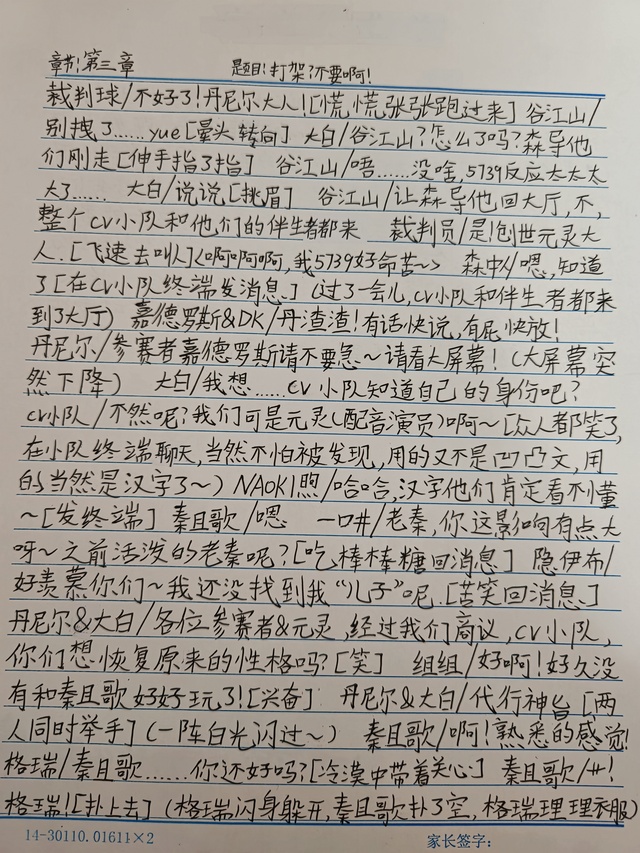 章节:第三章 题目:打架?不要啊!
裁判球/不好了!丹尼尔大人![慌慌张张跑过来] 谷江山/
别拽了……yue[晕头转向] 大白/谷江山?怎么了吗?森导他
们刚走[伸手指了指] 谷江山/唔……没啥,5739反应太太太
大了…… 大白/说说[挑眉] 谷江山/让森导他,回大厅,不,
整个cv小队和他们的伴生者都来 裁判员/是!创世元灵大
人.[飞速去叫](啊啊啊啊,我5739好命苦~) 森中人/嗯,知道
了[在CV小队终端发消息](过了一会儿,cv小队和伴生者都来
到了大厅) 嘉德罗斯&DK/丹渣渣!有话快说,有屁快放!
丹尼尔/参赛者嘉德罗斯请不要急~请看大屏幕!(大屏幕突
然下降) 大白/我想……cv小队知道自己的身份吧?
cv小队/不然呢?我们可是元灵(配音演员)啊~[众人都笑了,
在小队终端聊天,当然不怕被发现,用的又不是凹凸文,用
的当然是汉字了~) NAOKI煦/哈哈,汉字他们肯定看不懂
~[发终端] 秦且歌/嗯 一口井/老秦,你这影响有点大
呀~之前活泼的老秦呢?[吃棒棒糖回消息] 隐伊布/
好羡慕你们~我还没找到我“儿子”呢.[苦笑回消息]
丹尼尔&大白/各位参赛者&元灵,经过我们商议,cv小队,
你们想恢复原来的性格吗?[笑] 组组/好啊!好久没
有和秦且歌好好玩了![兴奋] 丹尼尔&大白/代行神旨[两
人同时举手](一阵白光闪过~) 秦且歌/啊!熟悉的感觉!
格瑞/秦且歌……你还好吗?[冷漠中带着关心] 秦且歌/艹!
格瑞![扑上去](格瑞闪身躲开,秦且歌扑了空,格瑞理理衣服)
14-30110.01611×2 家长签字: